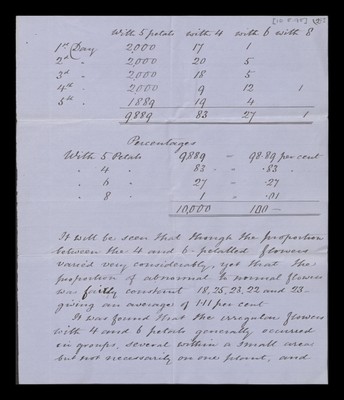 With 5 petals with 4 with 6 with 8
1st Day 2,000 17 1
2d " 2,000 20 5
3d " 2,000 18 5
4th " 2,000 9 12 1
5th " 1889 19 4
9889 83 27 1
Percentages
With 5 Petals 9889 – 98.89 per cent
" 4 " 83 – .83
" 6 " 27 – .27
" 8 " 1 – .01
10,000 100 –
It will be seen that though the proportion
between the 4 and 6-petalled flowers
varied very considerably, yet that the
proportion of abnormal to normal flowers
was fairly constant 18, 25, 23, 22 and 23 –
giving an average of 1.11 per cent
It was found that the irregular flowers
with 4 and 6 petals generally occurred
in groups, several within a small area
but not necessarily on one plant, and